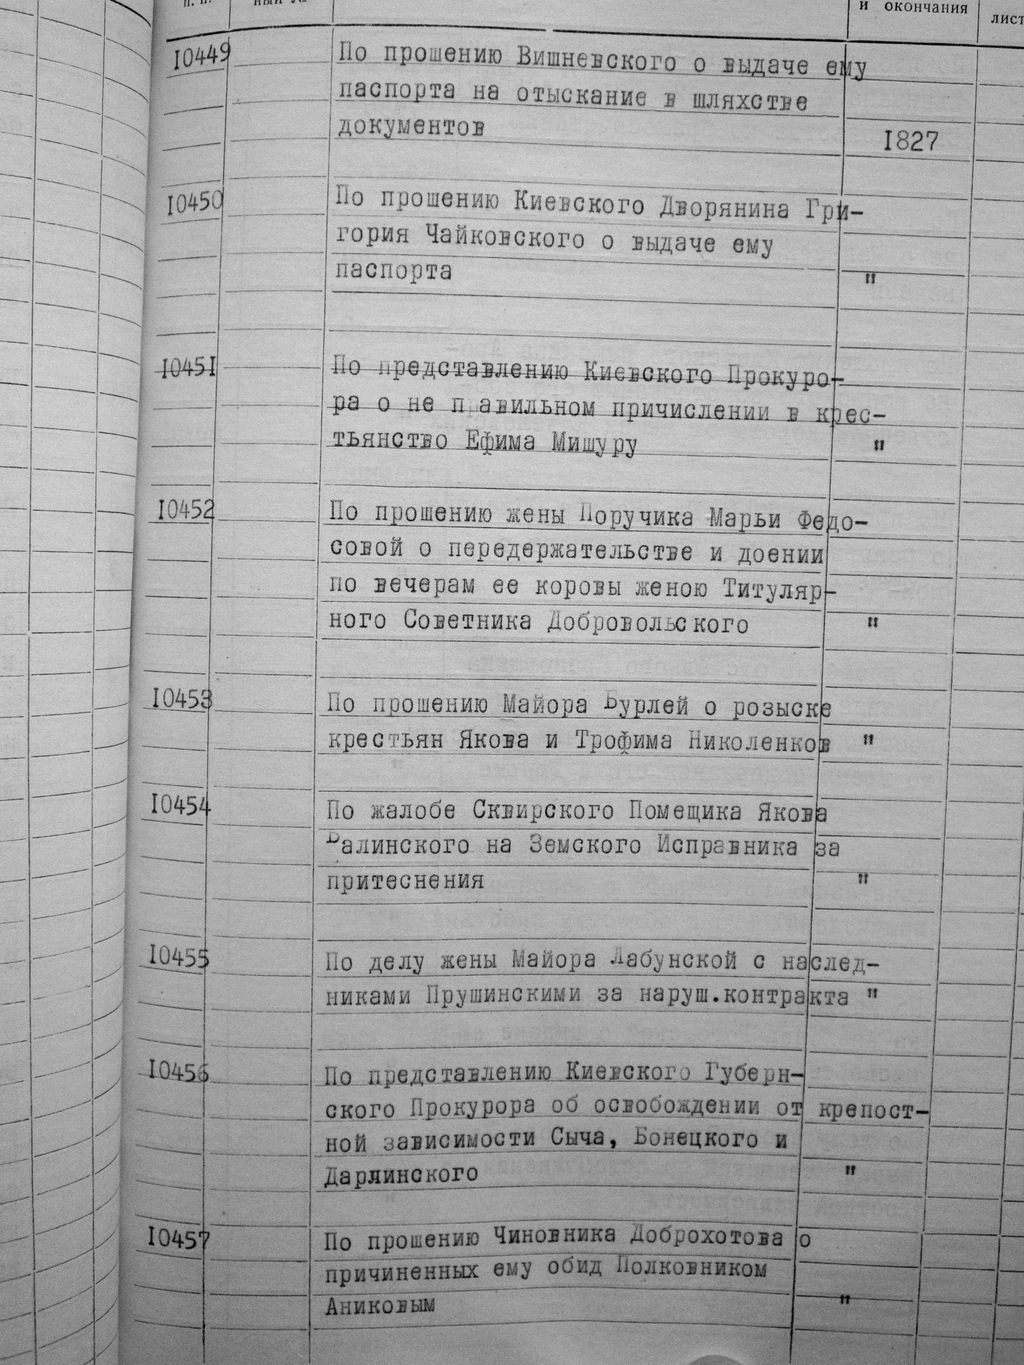 и окончания
лист
10449 По прошению Вишневского о выдаче ему
паспорта на отыскание в шляхстве
документов 1827
10450 По прошению Киевского Дворянина Гри-
гория Чайковского о выдаче ему
паспорта "
10451 По представлению Киевского Прокуро-
ра о не правильном причислении в крес-
тьянство Ефима Мишуру "
10452 По прошению жены Поручика Марьи Федо-
совой о передержательстве и доении
по вечерам ее коровы женою Титуляр-
ного Советника Добровольского "
10453 По прошению Майора Бурлей о розыске
крестьян Якова и Трофима Николенков "
10454 По жалобе Сквирского Помещика Якова
на Земского Исправника за
притеснения "
10455 По делу жены Майора Лабунской с наслед-
никами Прушинскими за наруш.контракта "
10456 По представлению Киевского Губерн-
ского Прокурора об освобождении от крепост-
ной зависимости Сыча, Бонецкого и
Дарлинского "
10457 По прошению Чиновника Доброхотова о
причиненных ему обид Полковником
Аниковым "